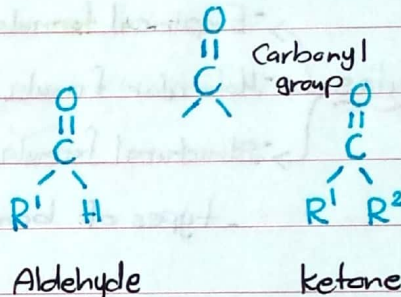 O
C
Carbonyl
group
O
C
R¹ H
O
C
R¹ R²
Aldehyde
ketone